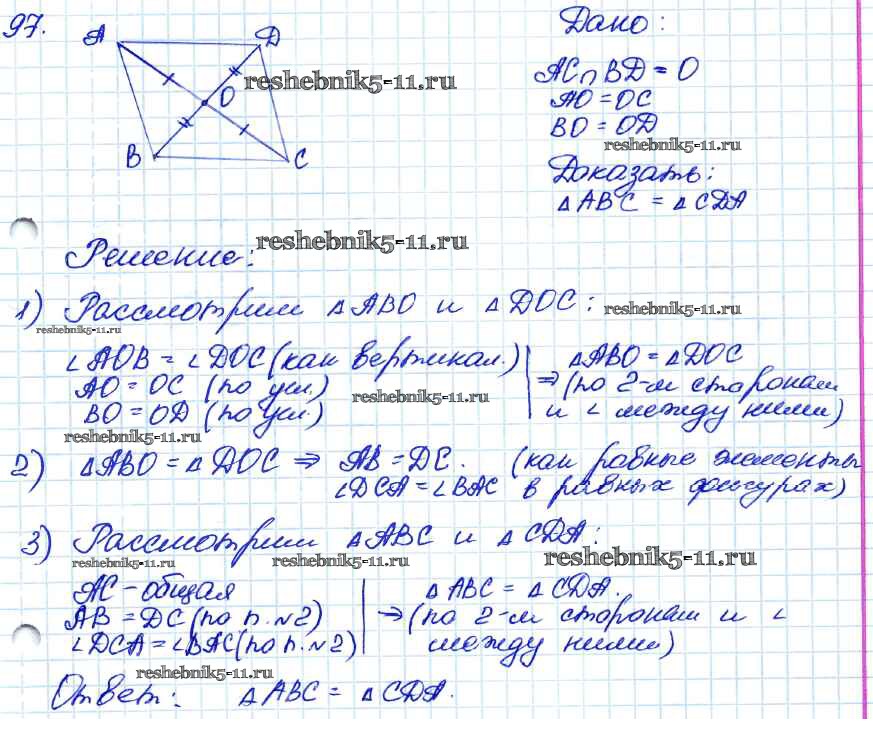 97.
A
D
O
B
C
reshebnik5-11.ru
Дано:
AC∩BD = O
AO = OC
BO = OD
reshebnik5-11.ru
Доказать:
△ABC = △CDA
Решение:
reshebnik5-11.ru
1) Рассмотрим △ABO и △DOC:
reshebnik5-11.ru
reshebnik5-11.ru
∠AOB = ∠DOC (как вертикал.)
AO = OC (по усл.)
BO = OD (по усл.)
⇒ △ABO = △DOC
(по 2-м сторонам
и ∠ между ними)
reshebnik5-11.ru
reshebnik5-11.ru
2) △ABO = △DOC ⇒ AB = DC. (как равные элементы
∠DCA = ∠BAC в равных фигурах)
3) Рассмотрим △ABC и △CDA:
reshebnik5-11.ru
reshebnik5-11.ru
reshebnik5-11.ru
AC – общая
AB = DC (по п. №2)
∠DCA = ∠BAC (по п. №2)
⇒ △ABC = △CDA.
(по 2-м сторонам и ∠
между ними)
reshebnik5-11.ru
Ответ: △ABC = △CDA.